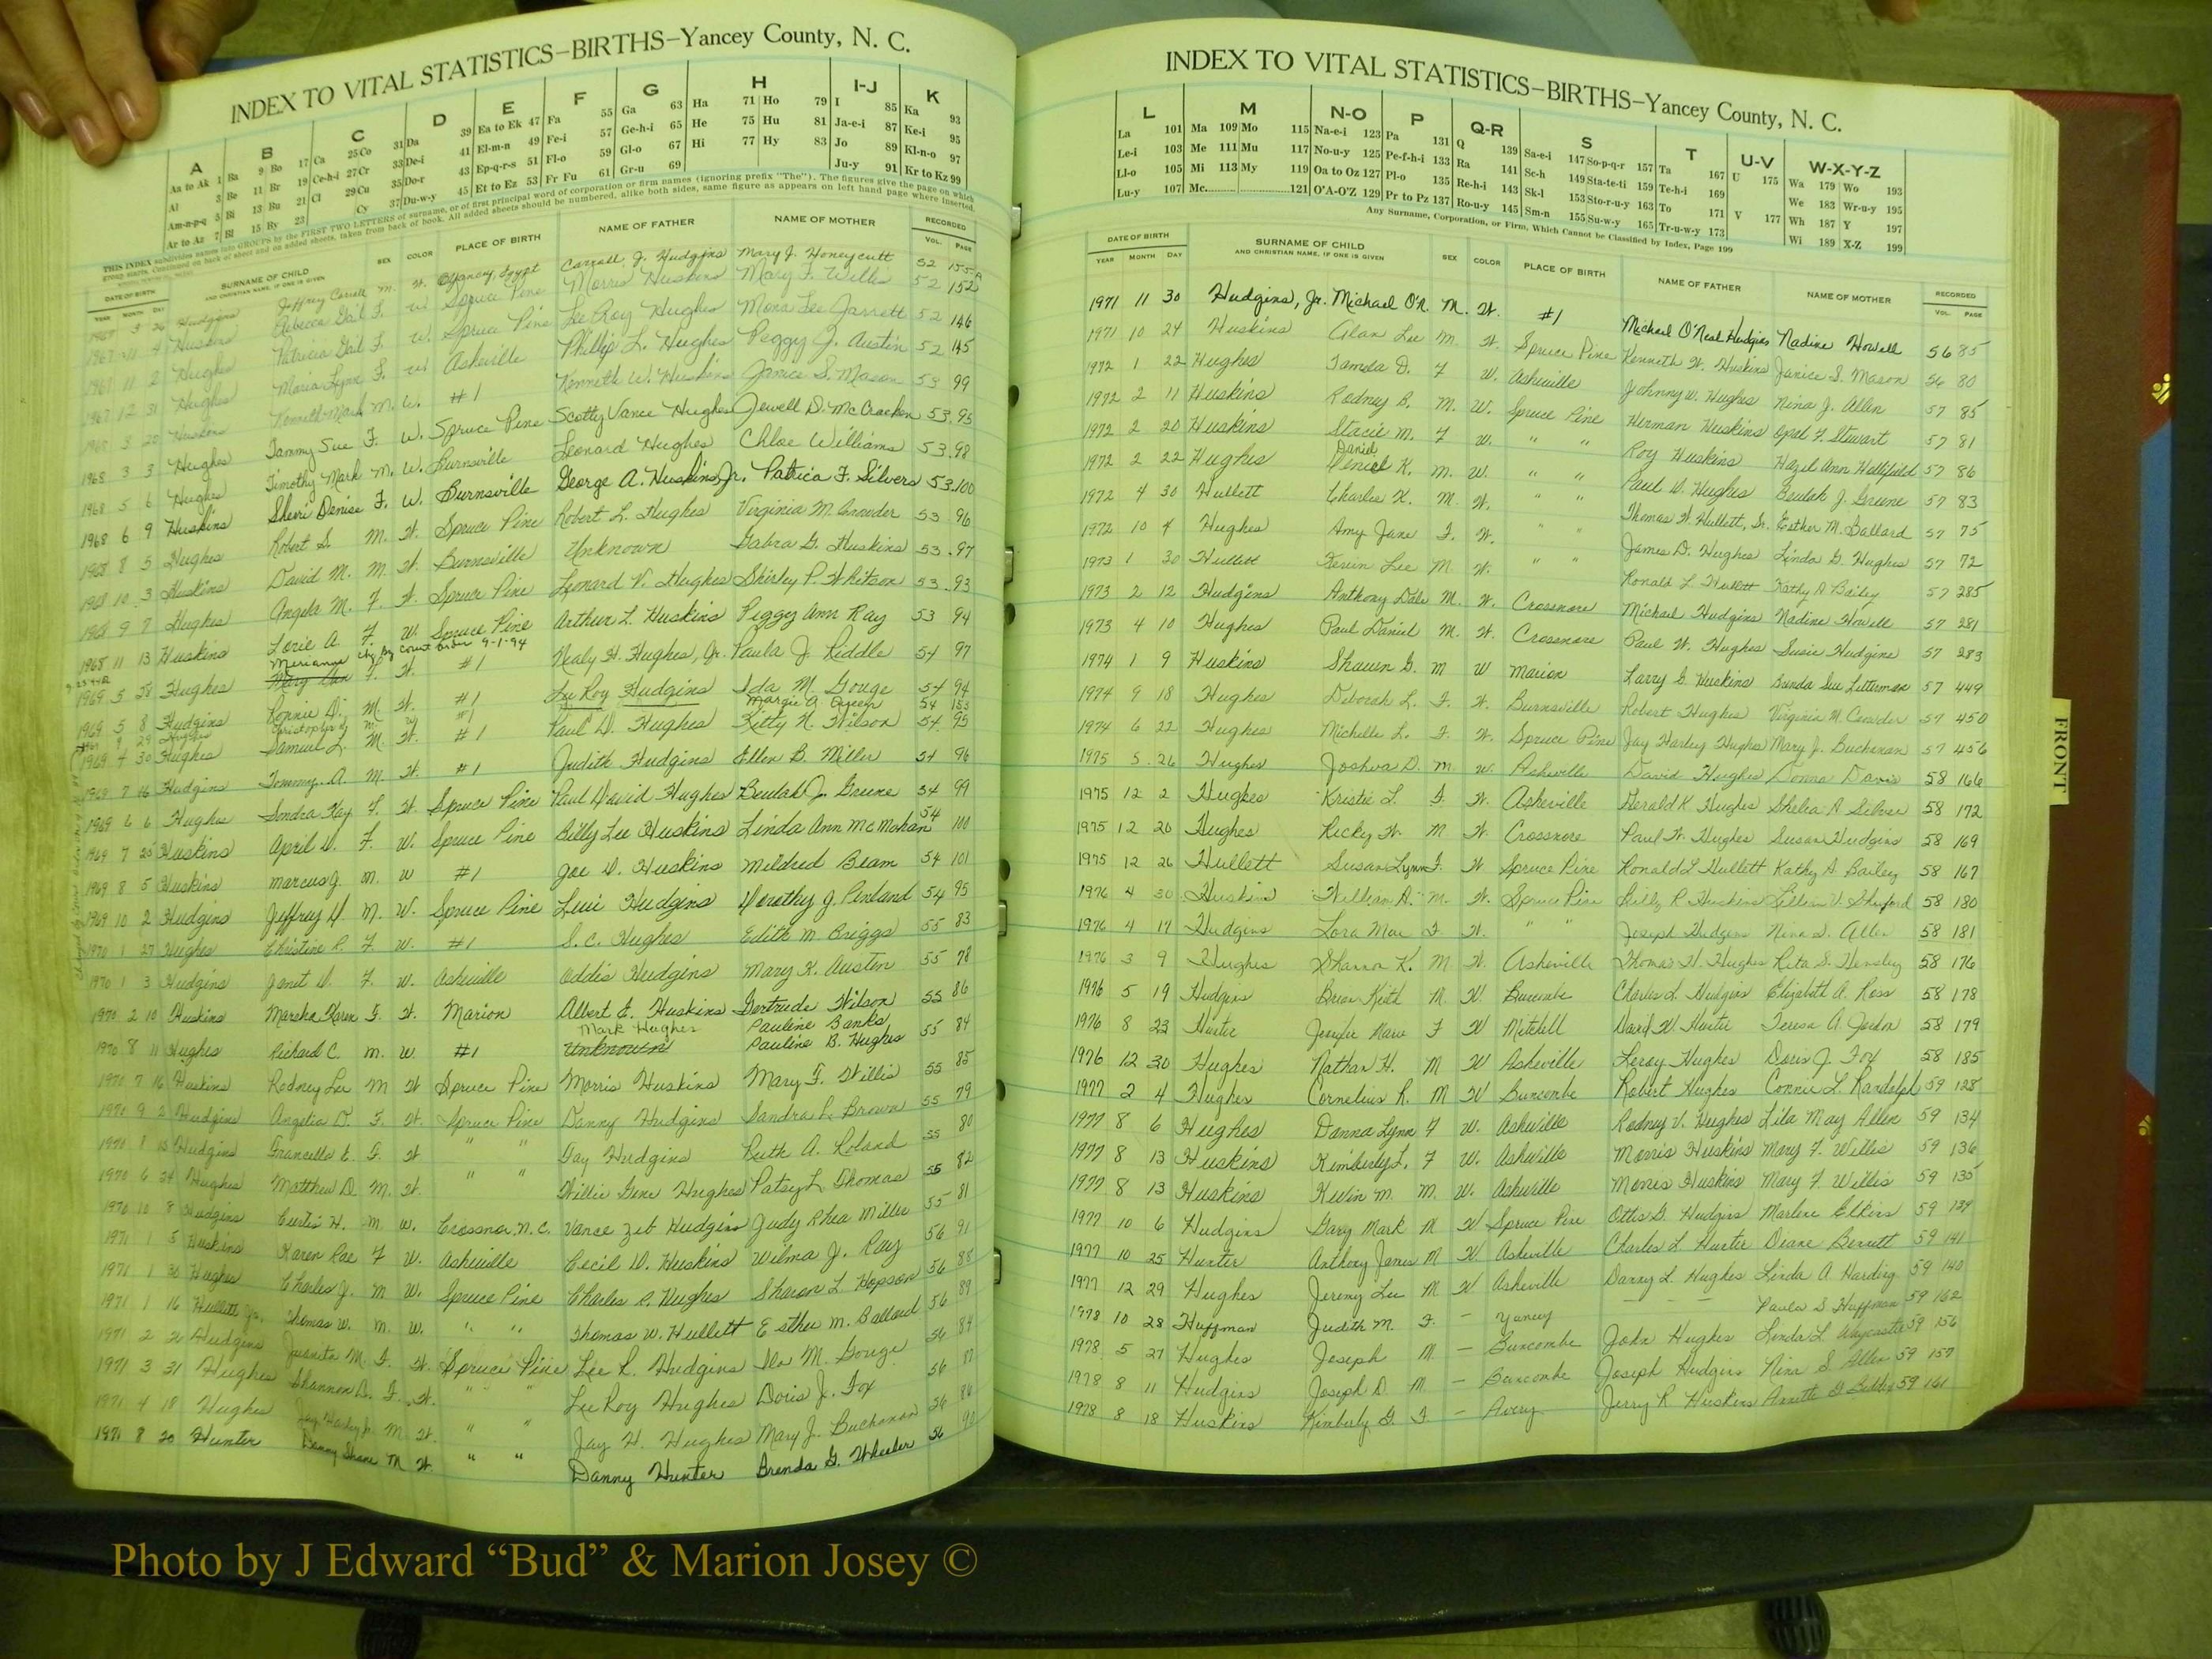 INDEX TO VITAL STATISTICS–BIRTHS–Yancey County, N. C.
A B C D E F G H I-J K
Aa to Ak 1 Ba 9 Bo 17 Ca 25 Co 31 Da 39 Ea to Ek 47 Fa 55 Ga 63 Ha 71 Ho 79 I 85 Ka 93
Al 3 Be 11 Br 19 Ce-h-i 27 Cr 33 De-i 41 El-m-n 49 Fe-i 57 Ge-h-i 65 He 75 Hu 81 Ja-e-i 87 Ke-i 95
Am-n-p-q 5 Bi 13 Bu 21 Cl 29 Cu 35 Do-r 43 Ep-q-r-s 51 Fl-o 59 Gl-o 67 Hi 77 Hy 83 Jo 89 Kl-n-o 97
Ar to Az 7 Bl 15 By 23 Cy 37 Du-w-y 45 Et to Ez 53 Fr Fu 61 Gr-u 69 Ju-y 91 Kr to Kz 99
THIS INDEX subdivides names into GROUPS by the FIRST TWO LETTERS of surname, or of first principal word of corporation or firm names (ignoring prefix "The"). The figures give the page on which
group starts. Continued on back of sheet and on added sheets, taken from back of book. All added sheets should be numbered, alike both sides, same figure as appears on left hand page where inserted.
DATE OF BIRTH SURNAME OF CHILD SEX COLOR PLACE OF BIRTH NAME OF FATHER NAME OF MOTHER RECORDED
YEAR MONTH DAY AND CHRISTIAN NAME, IF ONE IS GIVEN VOL. PAGE
Hudgins Jeffrey Carroll M. W. Carroll J. Hudgins Mary J. Honeycutt 52 155A
Huskins Rebecca Gail F. W. Spruce Pine Morris Huskins Mary F. Willis 52 152
1967 11 2 Hughes Patricia Gail F. W. Spruce Pine Lee Roy Hughes Mona Lee Jarrett 52 146
1967 12 31 Hughes Maria Lynn F. W. Asheville Phillip L. Hughes Peggy J. Austin 52 145
1968 3 20 Huskins Kenneth Mark M. W. #1 Kenneth W. Huskins Janice S. Mason 53 99
1968 3 3 Hughes Tammy Sue F. W. Spruce Pine Scotty Vance Hughes Jewell D. McCracken 53 95
1968 5 6 Hughes Timothy Mark M. W. Burnsville Leonard Hughes Chloe Williams 53 98
1968 6 9 Huskins Sherri Denise F. W. Burnsville George A. Huskins Jr. Patrica F. Silvers 53 100
1968 8 5 Hughes Robert S. M. W. Spruce Pine Robert L. Hughes Virginia M. Crowder 53 96
1968 10 3 Huskins David M. M. W. Burnsville Unknown Gabra G. Huskins 53 97
1968 9 7 Hughes Angela M. F. W. Spruce Pine Leonard V. Hughes Shirley P. Whitson 53 93
1968 11 13 Huskins Lorie A. F. W. Spruce Pine Arthur L. Huskins Peggy Ann Ray 53 94
Merianne chg by court order 9-1-94
1969 5 28 Hughes Mary Ann F. W. #1 Nealy H. Hughes, Jr. Paula J. Riddle 54 97
1969 5 8 Hudgins Ronnie D. M. W. #1 Lee Roy Hudgins Ida M. Gouge 54 94
9 29 Hughes Christopher M. W. #1 Margie A. 54 153
1969 4 30 Hughes Samuel L. M. W. #1 Paul D. Hughes Kitty N. Wilson 54 95
1969 7 16 Hudgins Tommy A. M. W. #1 Judith Hudgins Ellen B. Miller 54 96
1969 6 6 Hughes Sondra Kay F. W. Spruce Pine Paul David Hughes Beulah J. Greene 54 99
1969 7 25 Huskins April D. F. W. Spruce Pine Billy Lee Huskins Linda Ann McMahan 54 100
1969 8 5 Huskins Marcus J. M. W #1 Joe D. Huskins Mildred Beam 54 101
1969 10 2 Hudgins Jeffrey D. M. W. Spruce Pine Levi Hudgins Dorothy J. Penland 54 95
1970 1 27 Hughes Christine R. F. W. #1 S. C. Hughes Edith M. Griggs 55 83
1970 1 3 Hudgins Janet D. F. W. Asheville Oddis Hudgins Mary K. Austin 55 78
1970 2 10 Huskins Marsha Karen F. W. Marion Albert E. Huskins Gertrude Wilson 55 86
Mark Hughes Pauline Banks
1970 8 11 Hughes Richard C. M. W. #1 Unknown Pauline B. Hughes 55 84
1970 7 16 Huskins Rodney Lee M W Spruce Pine Morris Huskins Mary F. Willis 55 85
1970 9 2 Hudgins Angelia D. F. W. Spruce Pine Danny Hudgins Sandra L. Brown 55 79
1970 8 15 Hudgins Francella E. F. W " " Gay Hudgins Ruth A. Roland 55 80
1970 6 24 Hughes Matthew D. M. W. " " Willie Gene Hughes Patsy L Thomas 55 82
1970 10 8 Hudgins Curtis H. M W. Crossnor, N. C. Vance Zeb Hudgins Judy Rhea Miller 55 81
1971 1 5 Huskins Karen Rae F W. Asheville Cecil D. Huskins Wilma J. Ray 56 91
1971 1 30 Hughes Charles J. M W. Spruce Pine Charles R. Hughes Sharon L. Hopson 56 88
1971 1 16 Hullett Jr. Thomas W. M. W. " " Thomas W. Hullett Esther M. Ballard 56 89
1971 2 26 Hudgins Juanita M. F. W. Spruce Pine Lee R. Hudgins Ida M. Gouge 56 84
1971 3 31 Hughes Shannon D. F. W. " " Lee Roy Hughes Doris J. Fox 56 87
1971 4 18 Hughes Jay Harley Jr. M. W. " " Jay H. Hughes Mary J. Buchanan 56 86
1971 8 20 Hunter Danny Shane M W. " " Danny Hunter Brenda G. Wheeler 56 90
INDEX TO VITAL STATISTICS–BIRTHS–Yancey County, N. C.
L M N-O P Q-R S T U-V W-X-Y-Z
La 101 Ma 109 Mo 115 Na-e-i 123 Pa 131 Q 139 Sa-e-i 147 So-p-q-r 157 Ta 167 U 175 Wa 179 Wo 193
Le-i 103 Me 111 Mu 117 No-u-y 125 Pe-f-h-i 133 Ra 141 Sc-h 149 Sta-te-ti 159 Te-h-i 169 We 183 Wr-u-y 195
Ll-o 105 Mi 113 My 119 Oa to Oz 127 Pl-o 135 Re-h-i 143 Sk-l 153 Sto-r-u-y 163 To 171 V 177 Wh 187 Y 197
Lu-y 107 Mc 121 O'A-O'Z 129 Pr to Pz 137 Ro-u-y 145 Sm-n 155 Su-w-y 165 Tr-u-w-y 173 Wi 189 X-Z 199
Any Surname, Corporation, or Firm, Which Cannot be Classified by Index, Page 199
DATE OF BIRTH SURNAME OF CHILD SEX COLOR PLACE OF BIRTH NAME OF FATHER NAME OF MOTHER RECORDED
YEAR MONTH DAY AND CHRISTIAN NAME, IF ONE IS GIVEN VOL. PAGE
1971 11 30 Hudgins, Jr. Michael O'N. M. W. #1 Michael O'Neal Hudgins Nadine Howell 56 85
1971 10 24 Huskins Alan Lee M. W. Spruce Pine Kenneth W. Huskins Janice S. Mason 56 80
1972 1 22 Hughes Tamda D. F W. Asheville Johnny W. Hughes Nina J. Allen 57 85
1972 2 11 Huskins Rodney B. M. W. Spruce Pine Herman Huskins Opal F. Stewart 57 81
1972 2 20 Huskins Stacie M. F W. " " Roy Huskins Hazel Ann Hollifield 57 86
Daniel
1972 2 22 Hughes Deniel K. M. W. " " Paul D. Hughes Beulah J. Greene 57 83
1972 4 30 Hullett Charles K. M. W. " " Thomas W. Hullett, Sr. Esther M. Ballard 57 75
1972 10 4 Hughes Amy Jane F. W. " " James D. Hughes Linda G. Hughes 57 72
1973 1 30 Hullett Kevin Lee M W. " " Ronald L Hullett Kathy A Bailey 57 285
1973 2 12 Hudgins Anthony Dale M. W. Crossnore Michael Hudgins Nadine Howell 57 281
1973 4 10 Hughes Paul Daniel M. W. Crossnore Paul W. Hughes Susie Hudgins 57 283
1974 1 9 Huskins Shawn G. M W Marion Larry G. Huskins Banda Sue Letterman 57 449
1974 9 18 Hughes Deborah L. F. W. Burnsville Robert Hughes Virginia M. Crowder 57 450
1974 6 22 Hughes Michelle L. F. W. Spruce Pine Jay Harley Hughes Mary J. Buchanan 57 456
1975 5 26 Hughes Joshua D. M. W. Asheville David Hughes Donna Davis 58 166
1975 12 2 Hughes Kristie L. F. W. Asheville Gerald K Hughes Shelia R Silver 58 172
1975 12 20 Hughes Ricky W. M W. Crossnore Paul W. Hughes Susan Hudgins 58 169
1975 12 26 Hullett Susan Lynn F. W Spruce Pine Ronald L Hullett Kathy A. Bailey 58 167
1976 4 30 Huskins William R. M. W. Spruce Pine Billy R Huskins Lillian V. Shuford 58 180
1976 4 14 Hudgins Lora Mae F W. " " Joseph Hudgins Nina S. Allen 58 181
1976 3 9 Hughes Sharron K. M W. Asheville Thomas W. Hughes Rita S. Hensley 58 176
1976 5 19 Hudgins Brian Keith M. W. Buncombe Charles L. Hudgins Elizabeth A. Ross 58 178
1976 8 23 Hunter Jennifer Marie F W Mitchell David W. Hunter Teresa A. Jordan 58 179
1976 12 30 Hughes Nathan H. M W Asheville Leroy Hughes Doris J. Fox 58 185
1977 2 4 Hughes Cornelius R. M W Buncombe Robert Hughes Connie L. Randolph 59 128
1977 8 6 Hughes Danna Lynn F W. Asheville Rodney V. Hughes Lila May Allen 59 134
1977 8 13 Huskins Kimberly L. F W. Asheville Morris Huskins Mary F. Willis 59 136
1977 8 13 Huskins Kevin M. M. W. Asheville Morris Huskins Mary F. Willis 59 135
1977 10 6 Hudgins Gary Mark M W Spruce Pine Ottis G. Hudgins Marlene Elkins 59 129
1977 10 25 Hunter Anthony James M W. Asheville Charles L. Hunter Deane Bennett 59 141
1977 12 29 Hughes Jeremy Lee M W Asheville Danny L. Hughes Linda A Harding 59 140
1978 10 28 Huffman Judith M. F. – Yancey – – – Paula S Huffman 59 162
1978 5 27 Hughes Joseph M. – Buncombe John Hughes Linda L. 59 156
1978 8 11 Hudgins Joseph D. M – Buncombe Joseph Hudgins Nina S. Allen 59 157
1978 8 18 Huskins Kimberly G. F. – Avery Jerry R Huskins Annette G 59 161
FRONT
Photo by J Edward “Bud” & Marion Josey ©